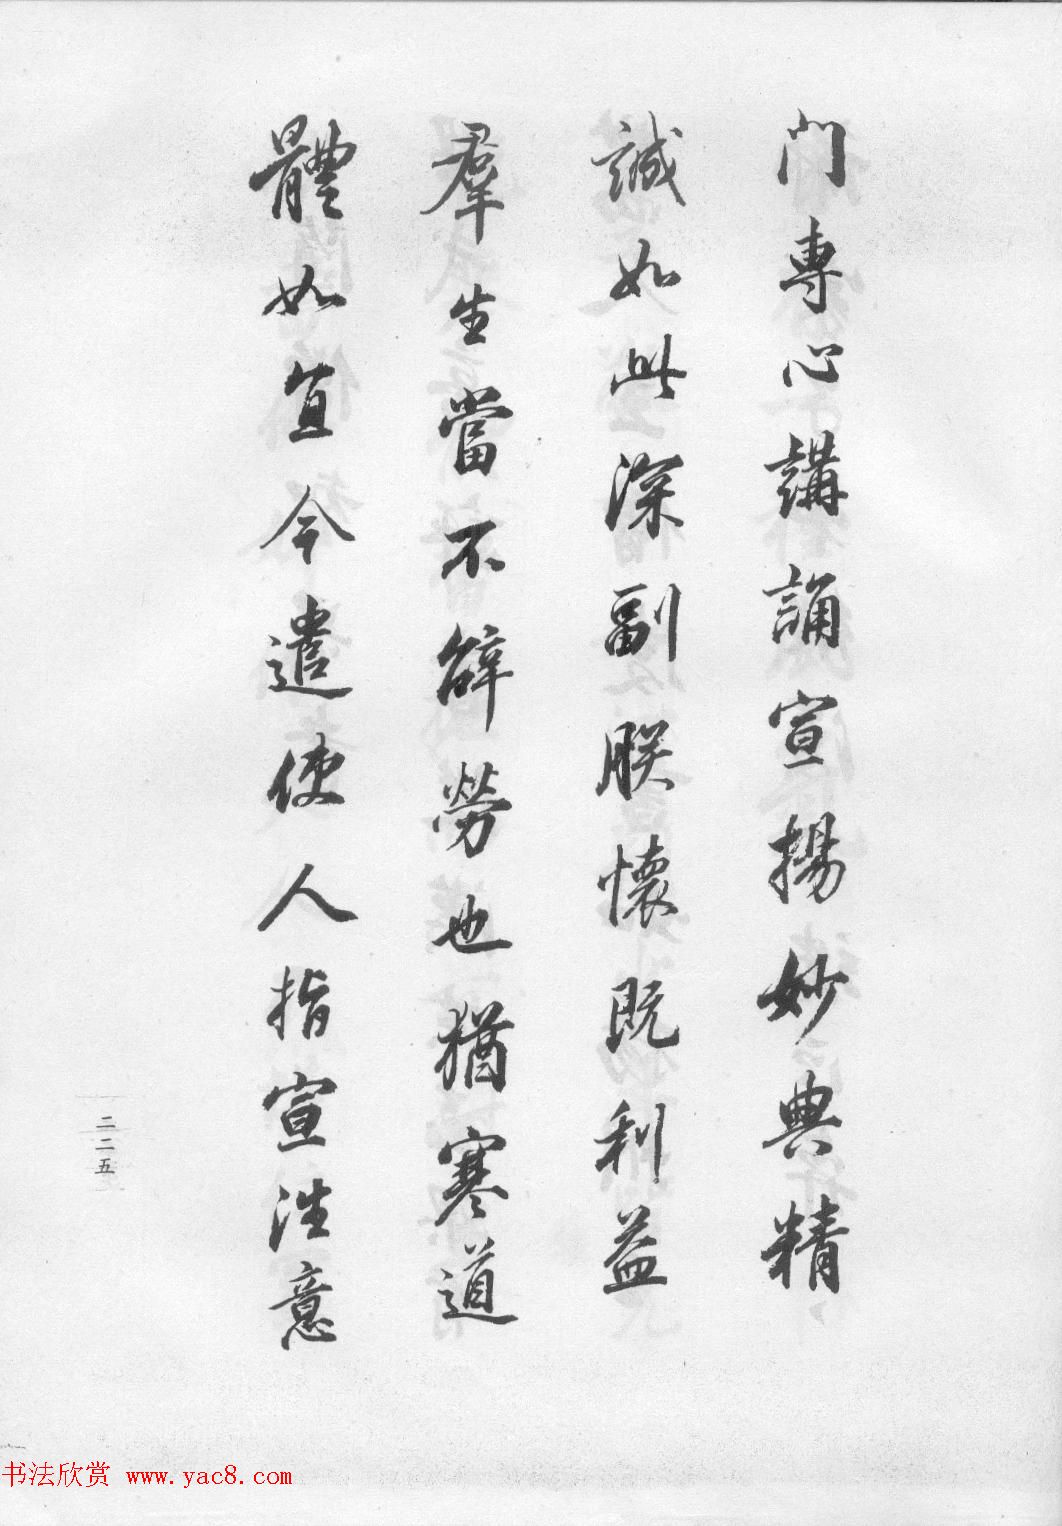 门專心講誦宣揚妙典精
誠如此深副朕懷既利益
羣生當不辭勞也猶寒道
體如宜今遣使人指宣往意
二二五
书法欣赏 www.yac8.com